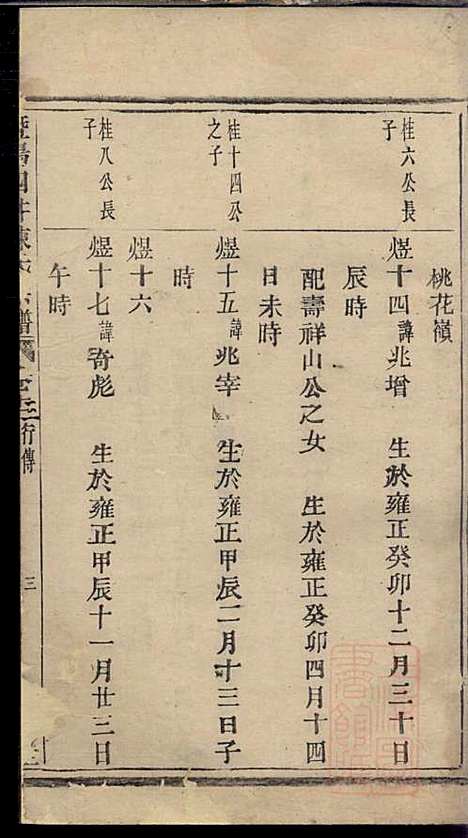 桃花嶺
桂六公長
子
煜十四諱兆增 生於雍正癸卯十二月三十日
辰時
配壽祥山公之女 生於雍正癸卯四月十四
日未時
桂十四公
之子
煜十五諱兆宰 生於雍正甲辰二月十三日子
時
煜十六
桂八公長
子
煜十七諱奇彪 生於雍正甲辰十一月廿三日
午時
行傳
三